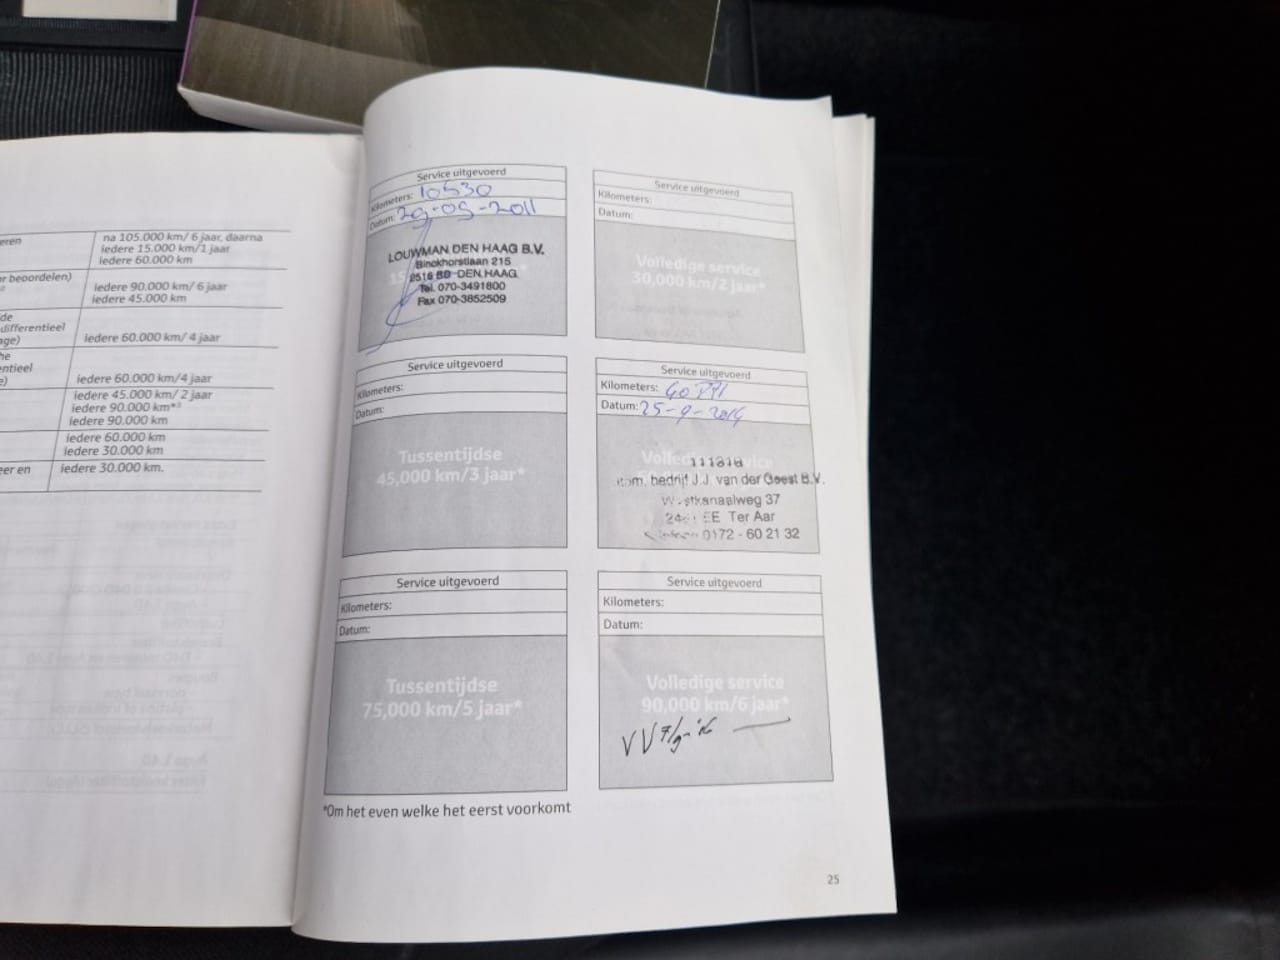 eren
na 105.000 km/ 6 jaar, daarna
iedere 15.000 km/1 jaar
iedere 60.000 km
r beoordelen)
iedere 90.000 km/ 6 jaar
iedere 45.000 km
de
differentieel
age)
iedere 60.000 km/ 4 jaar
he
entieel
e)
iedere 60.000 km/4 jaar
iedere 45.000 km/ 2 jaar
iedere 90.000 km*³
iedere 90.000 km
iedere 60.000 km
iedere 30.000 km
eer en
iedere 30.000 km.
Service uitgevoerd
Kilometers: 10530
Datum: 29-09-2011
LOUWMAN DEN HAAG B.V.
Binckhorstlaan 215
2516 BB DEN HAAG
Tel. 070-3491800
Fax 070-3852509
Service uitgevoerd
Kilometers:
Datum:
Volledige service
30,000 km/2 jaar*
Service uitgevoerd
Kilometers:
Datum:
Tussentijdse
45,000 km/3 jaar*
Service uitgevoerd
Kilometers:
Datum: 25-9-2014
Volledige service
111318
bedrijf J.J. van der Geest B.V.
Westkanaalweg 37
EE Ter Aar
0172 - 60 21 32
Service uitgevoerd
Kilometers:
Datum:
Tussentijdse
75,000 km/5 jaar*
Service uitgevoerd
Kilometers:
Datum:
Volledige service
90,000 km/6 jaar*
*Om het even welke het eerst voorkomt
25